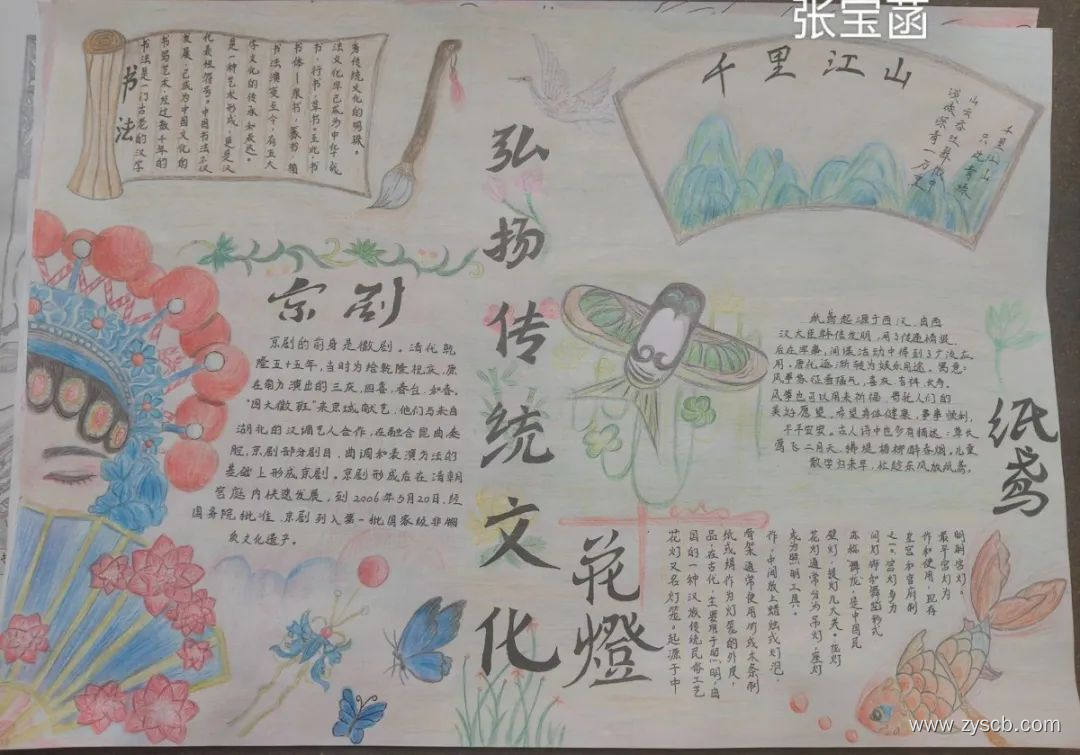 张宝菡
书法
书法是一门古老的汉字
书写艺术,经过数千年的
发展,已成为中国文化的
代表性符号。中国书法不仅
是一种艺术形式,更是汉
字文化的传承和表达。
书法演变至今,有五大
书体——隶书、篆书、楷
书,行书,草书。至此,书
法文化早已成为中华优
秀传统文化的明珠。
弘扬传统文化
千里江山
千里江山
只此青绿
山
京剧
京剧的前身是徽剧。清代乾
隆五十五年,当时为给乾隆祝庆,原
在南方演出的三庆,四喜,春台,如春,
“四大徽班”来京城献艺,他们与来自
湖北的汉调艺人合作,在融合昆曲秦
腔,京剧部分剧目,曲调和表演方法的
基础上形成京剧。京剧形成后在清朝
宫庭内快速发展,到2006年5月20日,经
国务院批准,京剧列入第一批国家级非物
质文化遗产。
纸鸢
纸鸢起源于西汉,由西
汉大臣韩信发明,用于传递情报
后在军事,间谍活动中得到了广泛应
用,唐化逐渐转为娱乐用途。寓意:
风筝象征着福气,喜庆,吉祥,长寿。
风筝也可以用来祈福,寄托人们的
美好愿望,希望身体健康,事事顺利,
平平安安。古人诗中也多有描述:草长
莺飞二月天,拂堤杨柳醉春烟。儿童
散学归来早,忙趁东风放纸鸢。
花燈
花灯又名灯笼。起源于中
国的一种汉族传统民俗工艺
品,在古代,主要用于照明,由
纸或绢作为灯笼的外皮,
骨架通常使用竹或木条制
作,中间放上蜡烛或灯泡,
成为照明工具。
花灯通常分为吊灯,座灯
壁灯,提灯几大类。花灯
亦称舞龙,是中国民
间灯饰和舞蹈形式
之一。宫灯多为
皇宫和官府制
作和使用,现存
最早宫灯为
明朝宫灯。
www.zyscb.com